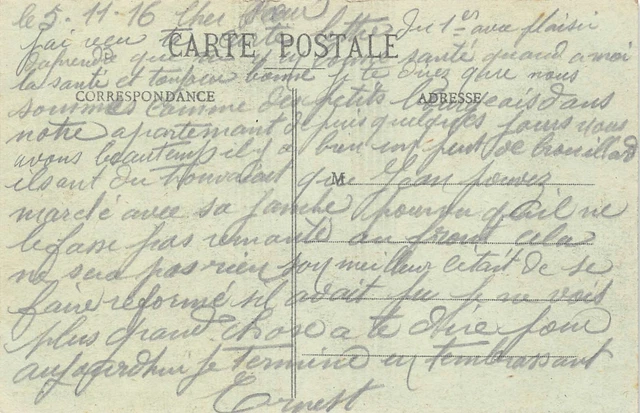 le 5.11-16 Cher Sœur
j'ai reçu ta lettre du 1er avec plaisir
CARTE POSTALE
d'aprendre que en bonne santé quand a moi
la santé et toujour bonne je te direz que nous
CORRESPONDANCE ADRESSE
sommes comme des petits bourgeois dans
notre apartement depuis quelques jours nous
avons beau temps il y a bien un peut de brouillard
ils ont du nouvalait que Jean pouvez
M
marché avec sa jambe pourvu qu'il ne
le fasse pas remonté au front cela
ne sera pas rien meilleur c'était de se
faire reformé s'il avait pu je ne vois
plus grand chose a te dire pour
aujourd'hui je termine en t'embrassant
Ernest